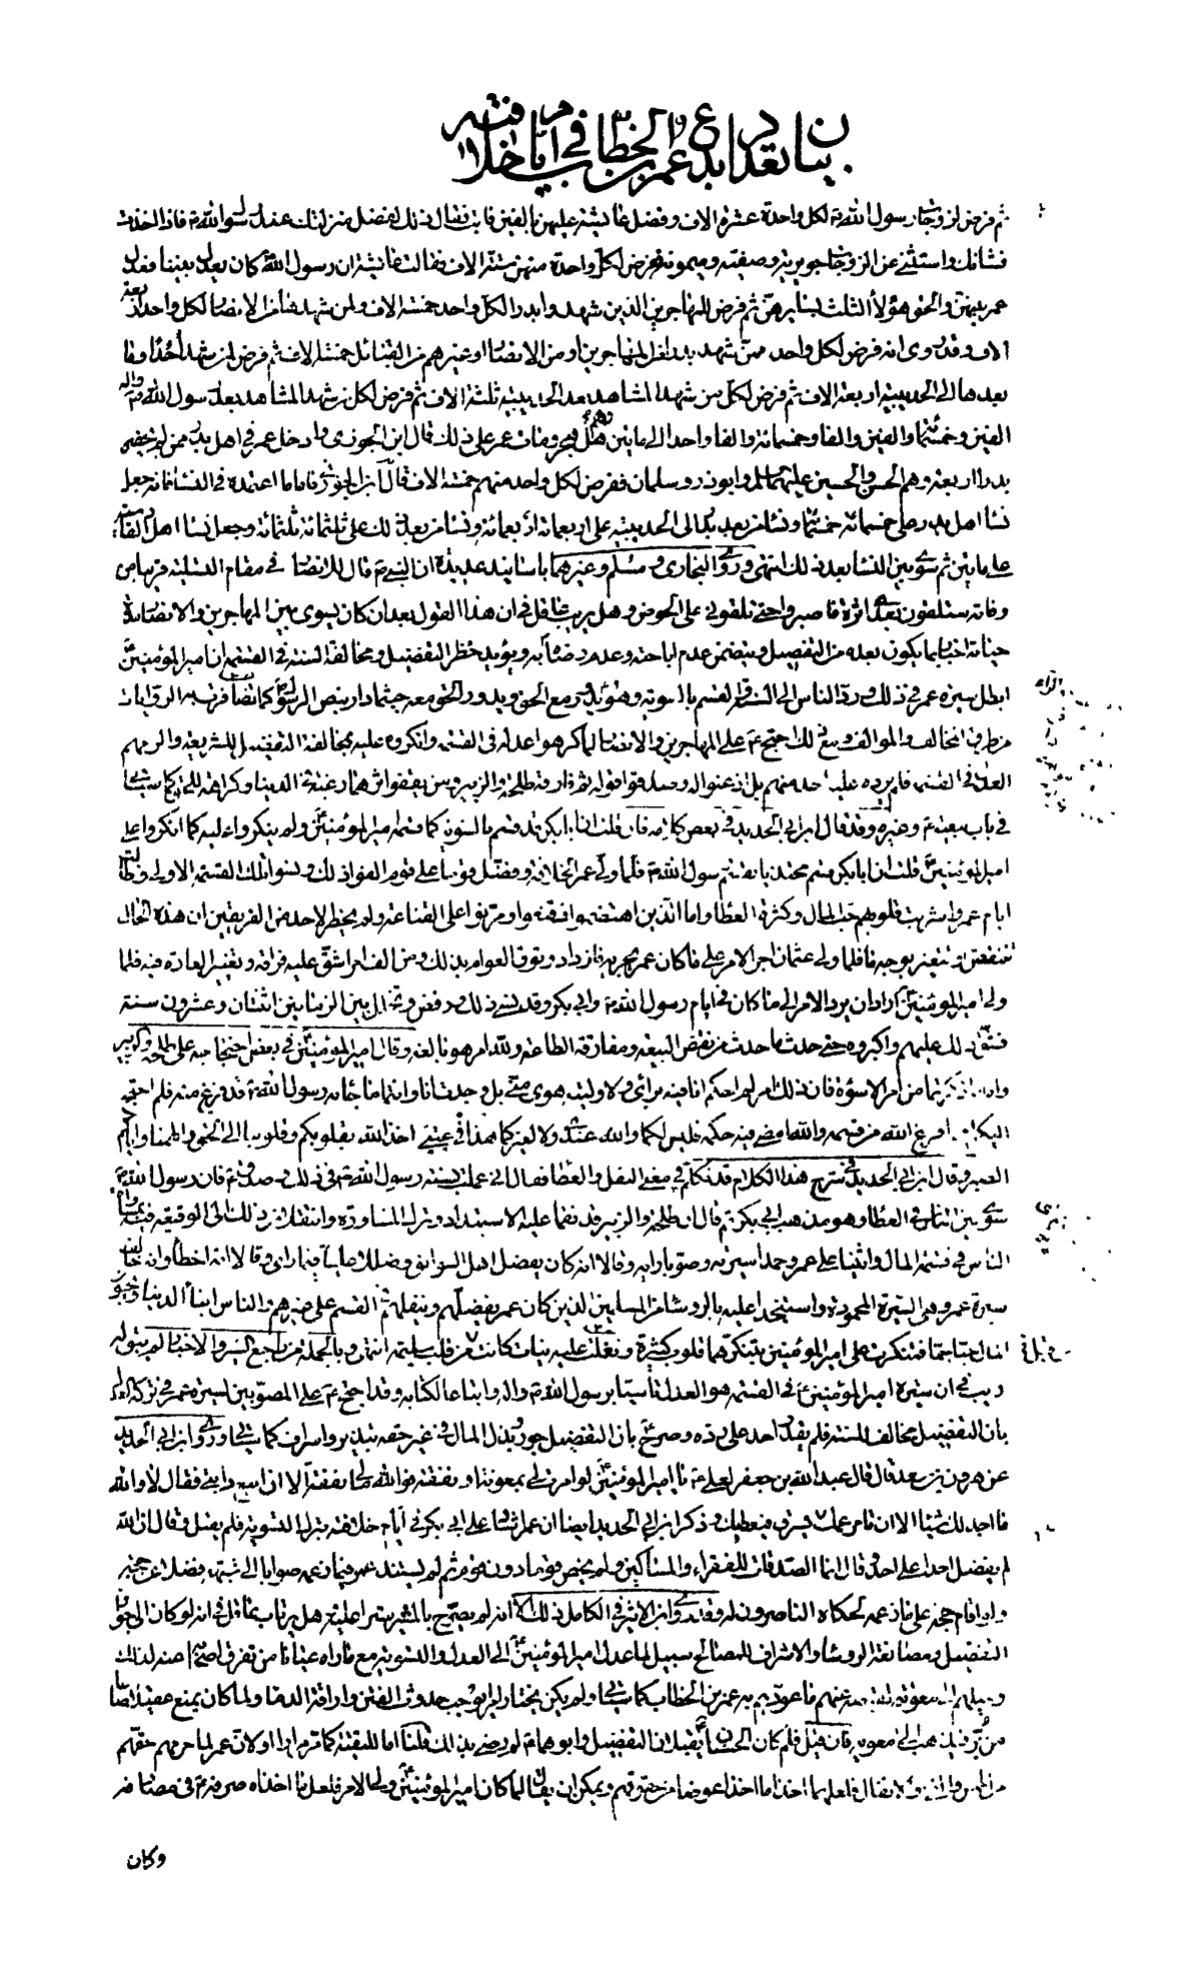 بيان تعداد بدع عمر بن الخطاب في ايام خلافته
ثم فرض لزوجات رسول الله ص لكل واحدة عشرة الاف وفضل عايشة عليهن بالفين فابت فقال ذلك لفضل منزلتك عند رسول الله ص فاذا اخذت
فشانك واستثنى عن الزوجات جويرية وصفية وميمونة ففرض لكل واحدة منهن ستة الاف فقالت عايشة ان رسول الله كان يعدل بيننا فعدل
عمر بينهن والحق هؤلاء الثلث بسايرهن ثم فرض للمهاجرين الذين شهدوا بدرا لكل واحد خمسة الاف ولمن شهدها من الانصار لكل واحد اربعة
الاف وقد روى انه فرض لكل واحد ممن شهد بدرا من المهاجرين او من الانصار او غيرهم من القبائل خمسة الاف ثم فرض لمن شهد احدا وما
بعدها الى الحديبية اربعة الاف ثم فرض لكل من شهد المشاهد بعد الحديبية ثلثة الاف ثم فرض لكل من شهد المشاهد بعد رسول الله ص واله
الفين وخمسمائة والفين والفا وخمسمائة والفا واحدا الى مائتين وهم اهل هجر ومات عمر على ذلك قال ابن الجوزى وادخل عمر في اهل بدر ممن لم يحضر
بدرا اربعة وهم الحسن والحسين عليهما السلم وابو ذر وسلمان ففرض لكل واحد منهم خمسة الاف قال ابن الجوزى فاما ما اعتمده في النساء فانه جعل
نساء اهل بدر على خمسمائة خمسمائة ونساء من بعد بدر الى الحديبية على اربعمائة اربعمائة ونساء من بعد ذلك على ثلثمائة ثلثمائة وجعل نساء اهل القادسية
على مائتين ثم سوى بين النساء بعد ذلك انتهى وروى البخارى ومسلم وغيرهما باسانيد عديدة ان النبى ص قال للانصار في مقام التسلية قريبا من
وفاته ستلقون بعدى اثرة فاصبروا حتى تلقونى على الحوض وهل يريب عاقل في ان هذا القول بعد ان كان يسوى بين المهاجرين والانصار مدة
حياته اخبار بما يكون بعده من التفضيل ويتضمن عدم اباحته وعدم رضائه به ويؤيد حظر التفضيل ومخالفة السنة في القسمة ان امير المؤمنين ع
ابطل سيرة عمر في ذلك ورد الناس الى السنة والقسم بالسوية وهو ع يدور مع الحق ويدور الحق معه حيثما دار بنص الرسول ص كما تضافرت به الروايات
من طرق المخالف والموالف ومع ذلك احتج ع على المهاجرين والانصار لما كرهوا عدله في القسمة وانكروه عليه بمخالفة التفضيل للشريعة والزمهم
العدل في القسمة فلم يرده عليه احد منهم بل اذعنوا له وصدقوا قوله ثم فارقه طلحة والزبير ومن يقفو اثرهما رغبة في الدنيا وكراهة للحق كما سيأتى
في باب بيعته ع وغيره وقد قال ابن ابى الحديد في بعض كلامه فان قلت ان ابا بكر قد قسم بالسوية كما قسمه امير المؤمنين ع ولم ينكروا عليه كما انكروا على
امير المؤمنين ع قلت ان ابا بكر قسم محتذيا بقسم رسول الله ص فلما ولى عمر الخلافة وفضل قوما على قوم الفوا ذلك ونسوا تلك القسمة الاولى وطالت
ايام عمر واشربت قلوبهم حب المال وكثرة العطاء واما الذين اهتضموا فقنعوا ومرنوا على القناعة ولم يخطر لاحد من الفريقين ان هذه الحال
تنتقض او تتغير بوجه ما فلما ولى عثمان اجرى الامر على ما كان عمر يجريه فازداد وثوق العوام بذلك ومن الف امرا شق عليه فراقه وتغيير العادة فيه فلما
ولى امير المؤمنين ع اراد ان يرد الامر الى ما كان في ايام رسول الله ص وابى بكر وقد نسى ذلك ورفض وتخلل بين الزمانين اثنتان وعشرون سنة
فشق ذلك عليهم واكبروه حتى حدث ما حدث من نقض البيعة ومفارقة الطاعة ولله امر هو بالغه وقال امير المؤمنين ع في بعض احتجاجه على طلحة والزبير
واما ما ذكرتما من امر الاسوة فان ذلك امر لم احكم انا فيه برأيى ولا وليته هوى منى بل وجدت انا وانتما ما جاء به رسول الله ص قد فرغ منه فلم احتج
اليكما فيما قد فرغ الله من قسمه والله امضى فيه حكمه فليس لكما والله عندى ولا لغيركما في هذا عتبى اخذ الله بقلوبكم وقلوبنا الى الحق والهمنا واياكم
الصبر وقال ابن ابى الحديد في شرح هذا الكلام قد تكلم ع في معنى النفل والعطاء فقال انى عملت بسنة رسول الله ص في ذلك وصدق ع فان رسول الله ص
سوى بين الناس في العطاء وهو مذهب ابى بكر ثم قال ان طلحة والزبير قد نقما عليه الاستبداد وترك المشاورة وانتقلا من ذلك الى الوقيعة فيه بمساواة
الناس في قسمة المال واثنيا على عمر وحمدا سيرته وصوبا رايه وقالا انه كان يفضل اهل السوابق وضللا عليا فيما راى وقالا انه اخطأ وانه خالف
سيرة عمر وهى السيرة المحمودة واستنجدا عليه بالرؤساء من المسلمين الذين كان عمر يفضلهم وينفلهم في القسم على غيرهم والناس ابناء الدنيا ويحبون
المال حبا جما فتنكرت على امير المؤمنين بتنكرهما قلوب كثيرة ونغلت عليه نيات كانت من قبل سليمة انتهى وبالجملة من راجع السير والاخبار لم يبق له
قبل
ريب في ان سيرة امير المؤمنين ع في القسمة هو العدل تاسيا برسول الله ص واله واتباعا لكتابه وقد احتج ع على المصوبين لسيرة عمر في تركه العدل
بان التفضيل مخالف للسنة فلم يقدر احد على رده وصرح ع بان التفضيل جور وبذل المال في غير حقه تبذير واسراف كما سيأتى وروى ابن ابى الحديد
عن هرون بن سعد قال قال عبد الله بن جعفر لعلى ع يا امير المؤمنين لو امرت لى بمعونة او نفقة فوالله ما لى نفقة الا ان ابيع دابتى فقال لا والله
ما اجد لك شيئا الا ان تامر عمك يسرق فيعطيك وذكر ابن ابى الحديد ايضا ان عمر اشار على ابى بكر في ايام خلافته بترك التسوية فلم يقبل وقال ان الله
لم يفضل احدا على احد وقال انما الصدقات للفقراء والمساكين ولم يخص قوما دون قوم ثم لم يستند عمر فيما زعمه صوابا الى شبهة فضلا عن حجة
ولو اقام حجة على ما زعمه لحكاه الناصرون له وقد روى ابن الاثير في الكامل ذلك الا انه لم يصرح بالمشير سترا عليه هل يرتاب عاقل في انه لو كان الى جواز
التفضيل ومصانعة الرؤساء والاشراف للمصالح سبيل لما عدل امير المؤمنين ع الى العدل والتسوية مع ما راه عيانا من تفرق اصحابه عنه لذلك
وميلهم الى معوية بقبضه عنهم ما عودهم به عمر بن الخطاب كما سيأتى ولم يكن يختار امرا يوجب حدوث الفتن واراقة الدماء ولما كان يمنع عقيلا صاعا
من بر فيذهب الى معوية فان قيل فلم كان الحسنان ع يقبلان التفضيل وابوهما ع لم يرضى بذلك قلنا اما للتقية كما مر مرارا او لان عمر لما حرمهم حقهم
من الخمس والفئ والانفال فلعلهما اخذا ما اخذا عوضا من حقوقهم ويمكن ان يقال لما كان امير المؤمنين ع ولى الامر فلعل ما اخذاه صرفه ع في مصارفه
وكان